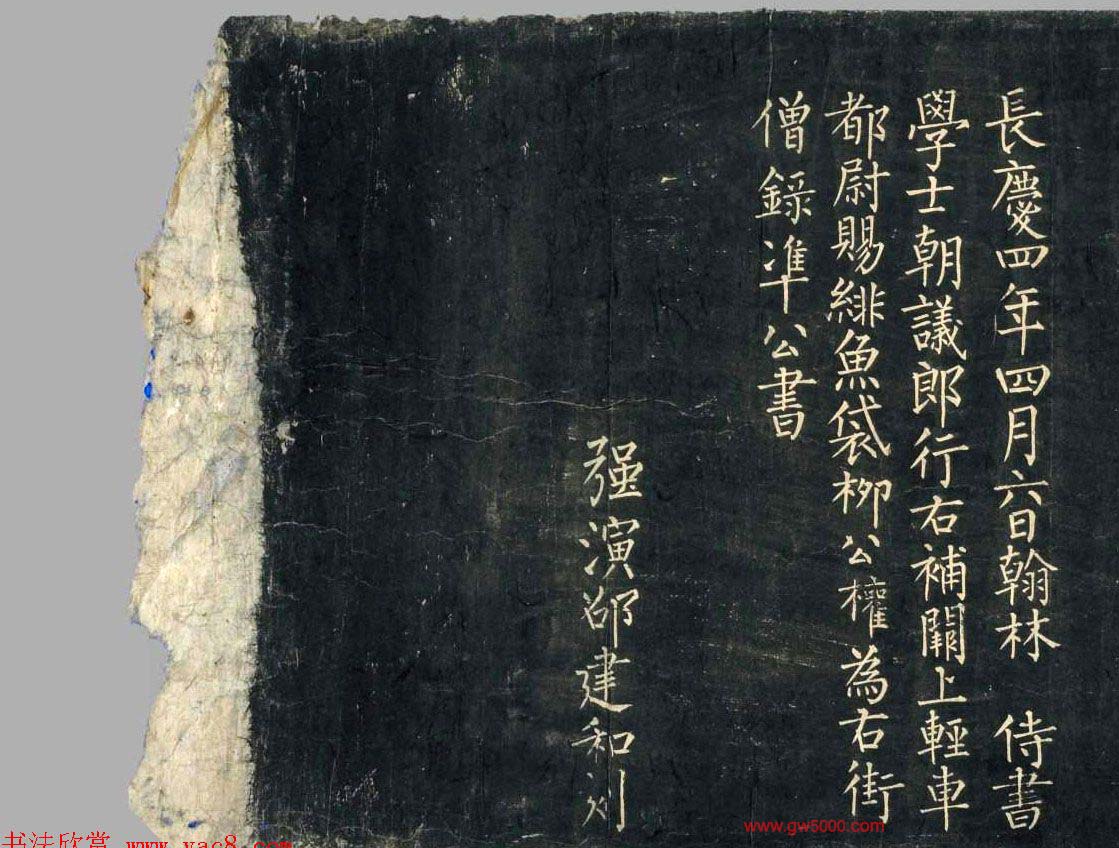 長慶四年四月六日翰林 侍書
學士朝議郎行右補闕上輕車
都尉賜緋魚袋柳公權為右街
僧錄准公書
强演邵建和刻
www.gw5000.com
书法欣赏 www.yac8.com